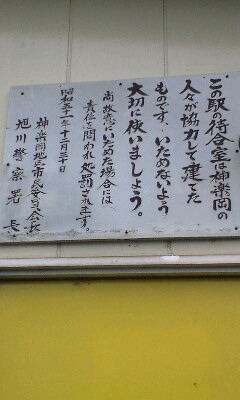 この駅の待合室は神楽岡の
人々が協力して建てた
ものです。いためないよう
大切に使いましょう。
尚故意にいためた場合には
責任を問われ処罰されます。
昭和五十一年十二月三十日
神楽岡地区市民委員会会長
旭川警察署長